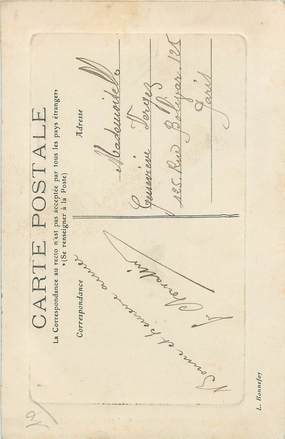 CARTE POSTALE
La Correspondance au recto n'est pas acceptée par tous les pays étrangers
(Se renseigner à la Poste)
Correspondance
Adresse
Bonne et heureuse année
Mademoiselle
Geneviève
125 Rue 125
Paris
L. Bonnefoy